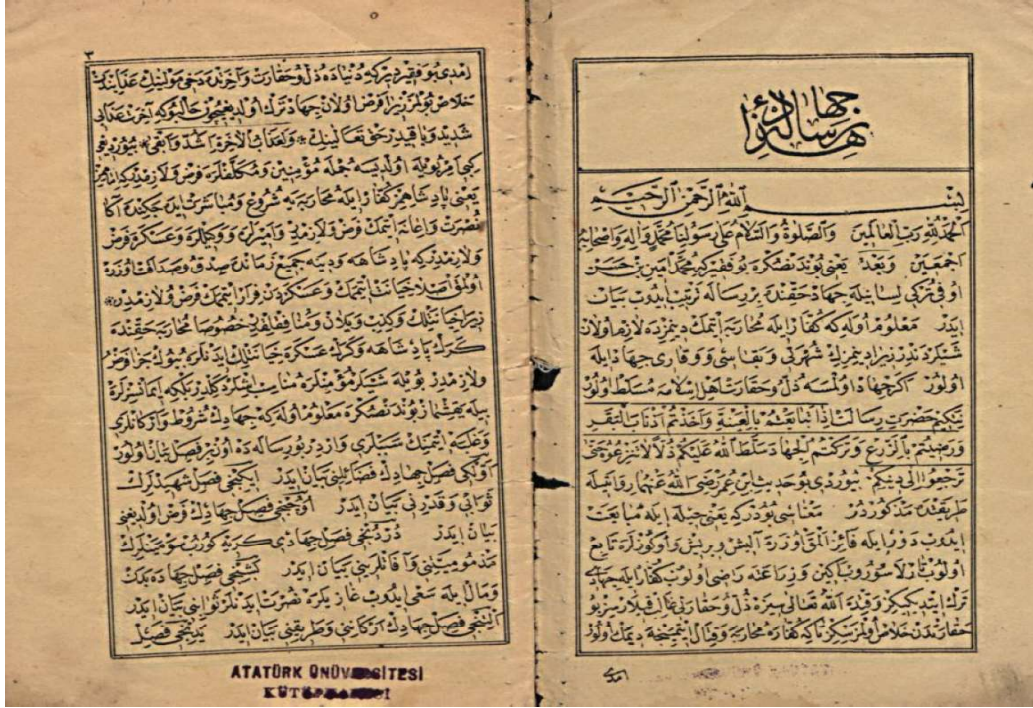 هذه رسالۀ جهاد
بسم الله الرحمن الرحيم
الحمد لله رب العالمين والصلوة والسلام على رسولنا محمد واله واصحابه
اجمعين وبعد يعنى بوندنصكره بو فقير كه محمد امين بن حسن
اوفى تركى لسانيله جهاد حقنده بر رساله ترتيب ايدوب بيان
ايدر معلوم اوله كه كفار ايله محاربه ايتمك ديمزده لازم اولان
شيلردندر زيرا ديمزك شهرتى وبقاسى ووقارى جهاد ايله
اولور اكر جهاد اولمسه ذل وحقارت اهل اسلامه مسلط اولور
نيتكيم حضرت رسالت اذا تبايعتم بالعينة واخذتم اذناب البقر
ورضيتم بالزرع وتركتم الجهاد سلط الله عليكم ذلا لا تنزعوه حتى
ترجعوا الى دينكم بيوردى بو حديث ابن عمر رضى الله عنهما روايتيله
طريقنده مذكوردر معناسى بودركه يعنى حيله ايله مبايعت
ايدوب دور ايله فائز المق اوزره اليش ويريش واوكوزلره تابع
اولوب تارلا سوروب اكين وزراعته راضى اولوب كفار ايله جهادى
ترك ايتديككز وقتده الله تعالى سزه ذل وحقارتى
حقارتدن خلاص اولمزسكز تا كه كفاره محاربه وقتال ايتمينجه ديمك اولور
امدى
٣
امدى بو فقير ديركه دنياده ذل وحقارت واخرتده دخى مولينك عذابندن
خلاص بولمز زيرا فرض اولان جهاد ترك اولديغيچون حالبوكه اخرت عذابى
شديد وباقيدر حق تعالينك ولعذاب الاخرة اشد وابقى بيورديغى
كبى امر بويله اولديسه جمله مؤمنين ومكلفلره فرض ولازمدركه
يعنى پادشاهمز كفار ايله محاربه يه شروع ومباشرت ايده جكنده اكا
نصرت واعانه ايتمك فرض ولازمدر واميرلره ووكيللره وعسكره فرض
ولازمدركه پادشاهه ودينه جميع زمانده صدق وصداقت اوزره
اولمق اصلا خيانت ايتمك وعسكردن فرار ايتمك فرض ولازمدر
زيرا خيانتلك وكذب ويلان ومنافقلغدر خصوصا محاربه حقنده
كرك پادشاهه وكرك عسكره خيانتلك ايدنلره بيوك جزا فرض
ولازمدر بويله شيلر مؤمنلره مناسب ايشلر دكلدر بلكه ايمانسزلره
بيله بوندنصكره معلوم اوله كه جهادك شروط واركانلرى
وغلبه ايتمنك سببلرى واردر بو رساله ده اون بر فصل بيان اولور
اولكى فصل جهادك فضائلنى بيان ايدر ايكنجى فصل شهيدلرك
ثوابى وقدرنى بيان ايدر اوچنجى فصل جهادك فرض اولديغنى
بيان ايدر دردنجى فصل جهادى كريه كوروب سومينلرك
مذموميتنى وافاتلرينى بيان ايدر بشنجى فصل جهاده بدن
ومال ايله سعى ايدوب غازيلره نصرت ايدنلر ثوابنى بيان ايدر
التنجى فصل جهادك اركاننى وطريقنى بيان ايدر يدنجى فصل
ATATÜRK ÜNÜVERSİTESİ
KÜTÜPHANESİ